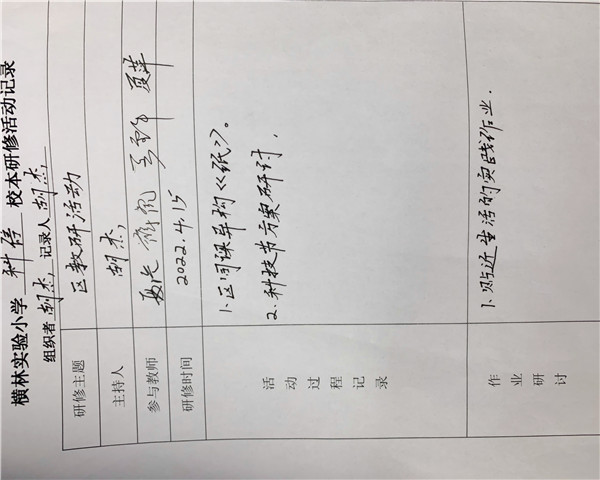 横林实验小学 科信 校本研修活动记录
组织者 胡杰, 记录人 胡杰,
研修主题 区教研活动
主持人 胡杰,
参与教师 夏萍
研修时间 2022.4.15
活动过程记录
1.区同课异构《纸》。
2.科技节方案研讨,
作业研讨
1.贴近生活的实践作业.